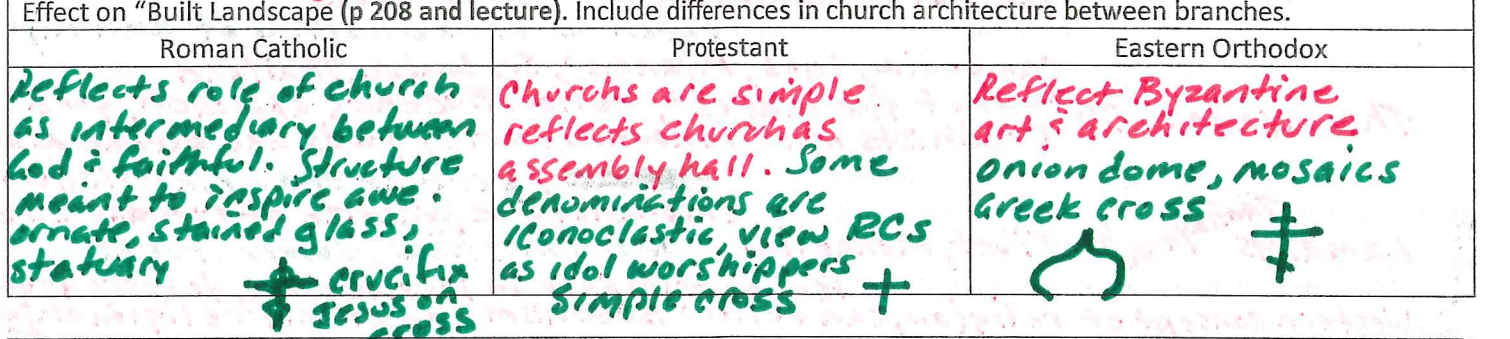 Effect on "Built Landscape (p 208 and lecture). Include differences in church architecture between branches.
Roman Catholic
Reflects role of church
as intermediary between
God & faithful. Structure
meant to inspire awe.
ornate, stained glass,
statuary
crucifix
Jesus on
cross
Protestant
Churchs are simple.
reflects church as
assembly hall. Some
denominations are
iconoclastic, view RCs
as idol worshippers
Simple cross
Eastern Orthodox
Reflect Byzantine
art & architecture
Onion dome, mosaics
Greek cross